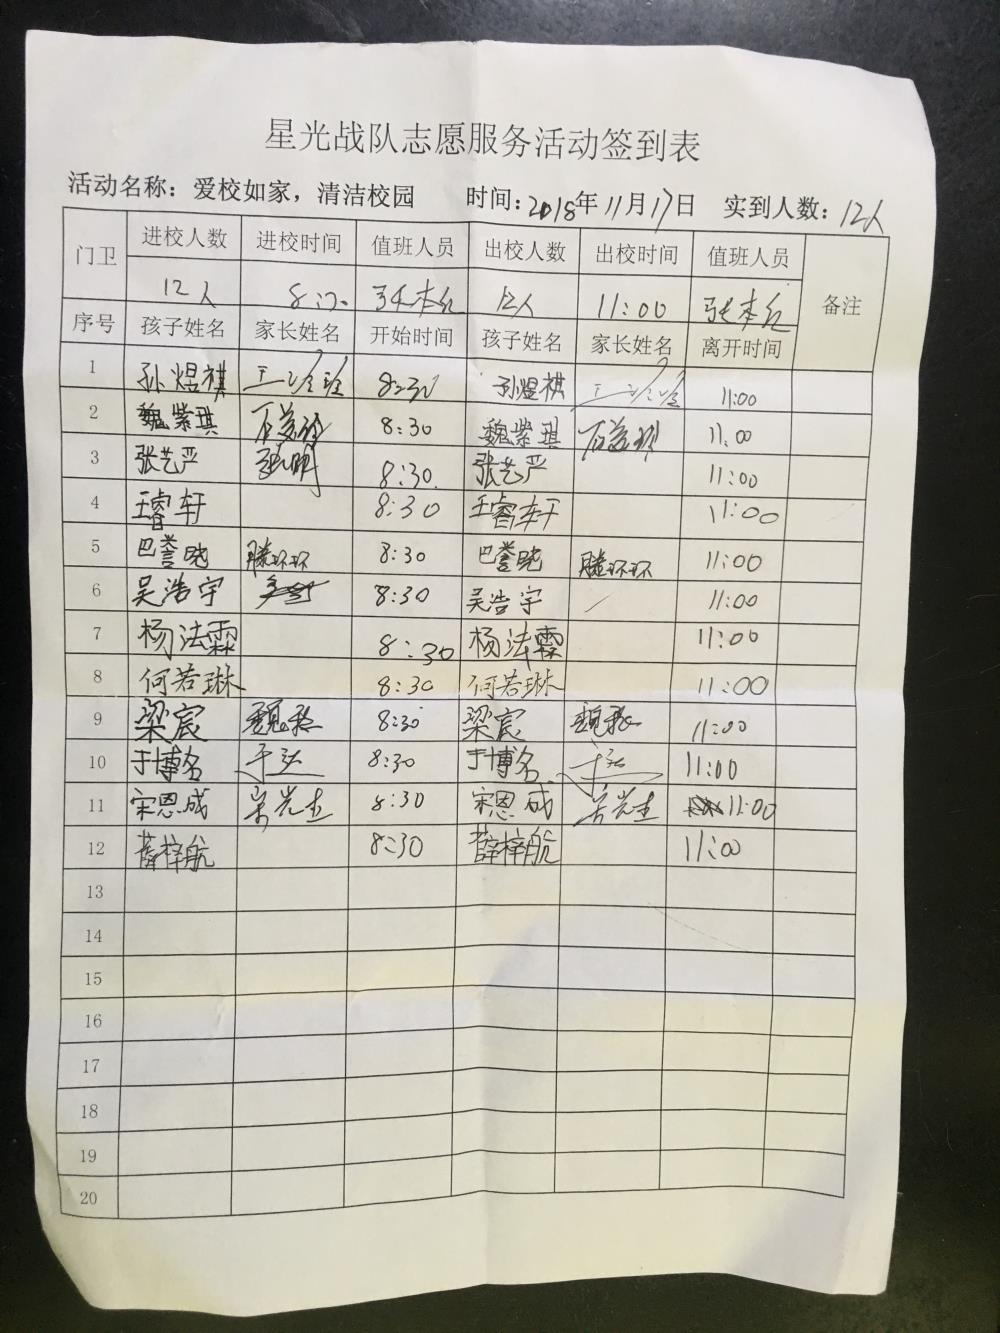 星光战队志愿服务活动签到表
活动名称：爱校如家，清洁校园 时间：2018年11月17日 实到人数：12人
门卫 进校人数 进校时间 值班人员 出校人数 出校时间 值班人员 备注
12人 张本红 12人 11:00 张本红
序号 孩子姓名 家长姓名 开始时间 孩子姓名 家长姓名 离开时间
1 孙煜祺 8:30 孙煜祺 11:00
2 魏紫琪 8:30 魏紫琪 11:00
3 张艺严 8:30 张艺严 11:00
4 王睿轩 8:30 王睿轩 11:00
5 巴誉晓 滕环环 8:30 巴誉晓 滕环环 11:00
6 吴浩宇 8:30 吴浩宇 11:00
7 杨法霖 8:30 杨法霖 11:00
8 何若琳 8:30 何若琳 11:00
9 梁宸 8:30 梁宸 11:00
10 于博名 8:30 于博名 11:00
11 宋恩成 8:30 宋恩成 11:00
12 薛梓航 8:30 薛梓航 11:00
13
14
15
16
17
18
19
20